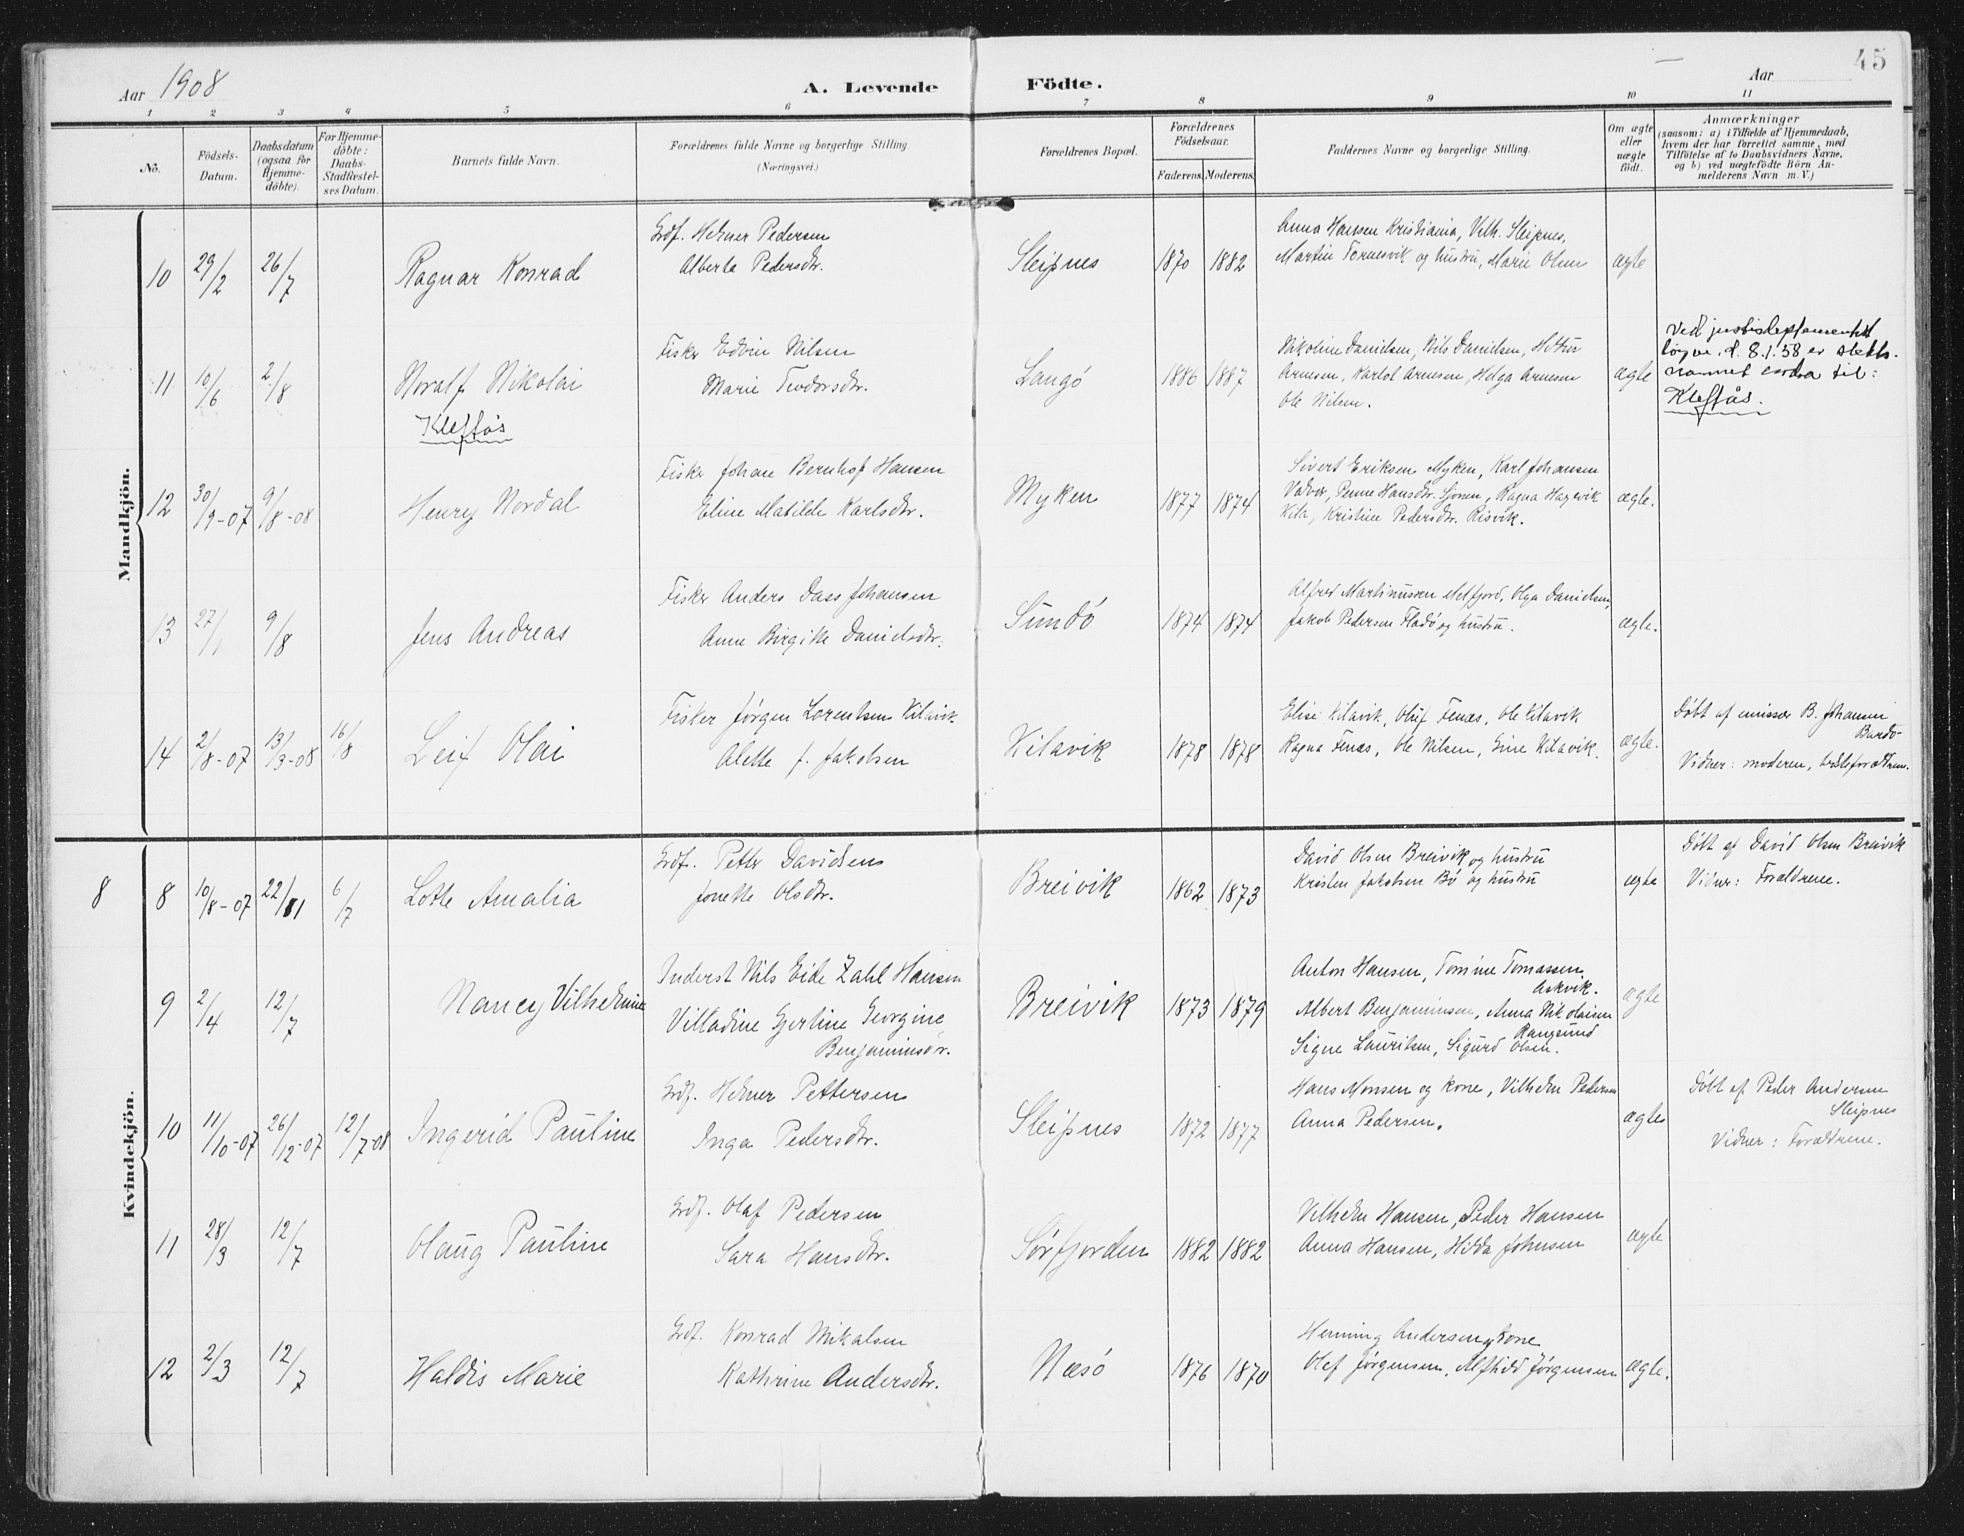 45
Aar 1908 A. Levende Födte. Aar
1 2 3 4 5 6 7 8 9 10 11
No. Födsels-Datum. Daabsdatum (ogsaa for Hjemme-döbte). For Hjemme-döbte: Daabs-Stadfæstel-ses Datum. Barnets fulde Navn. Forældrenes fulde Navne og borgerlige Stilling (Næringsvei.) Forældrenes Bopæl. Forældrenes Födselsaar. Faderens. Moderens. Faddernes Navne og borgerlige Stilling. Om ægte eller uægte födt. Anmærkninger (saasom: a) i Tilfælde af Hjemmedaab, hvem der har forrettet samme, med Tilföielse af to Daabsvidners Navne, og b) ved uægtefödte Börn An-melderens Navn m. V.)
Mandkjön.
Grdf. Helmer Pedersen Anna Hansen Kristiania, Vilh. Sleipnes,
10 29/2 26/7 Ragnar Konrad Alberta Pedersdtr. Sleipnes 1870 1882 Martin Tornesvik og hustru, Marie Olsen ægte
Fisker Edvin Nilsen Nikoline Danielsen, Nils Danielsen, Ved justisdeptementet
11 10/6 2/8 Noralf Nikolai Marie Teodorsdtr. Langö 1886 1887 Arnesen, Karlot Arnesen, Helga Arnesen ægte d. 8.1.58 er slekts-
Ole Nilsen. navnet endra til:
Kleftås Kleftås.
Fisker Johan Bernhof Hansen Sivert Eriksen Myken, Karl Johansen
12 30/9-07 9/8-08 Henry Nordal Eline Matilde Karlsdtr. Myken 1877 1874 Valvær, Penne Hansdtr. Sjonen, Ragna Hagevik ægte.
Kila, Kristine Pedersdtr. Risvik.
Fisker Anders Dass Johansen Alfred Martinussen Melfjord, Olga Danielsen,
13 27/1 9/8 Jens Andreas Anne Birgitte Danielsdtr. Sundö 1874 1874 Jakob Pedersen Fladö og hustru. ægte.
Fisker Jørgen Lorentsen Kilavik Elise Kilavik, Oluf Fenæs, Ole Kilavik Døbt af emissær B. Johansen
14 2/8-07 13/3-08 16/8 Leif Olai Alette f. Jakobsen Kilavik 1878 1878 Ragna Fenæs, Ole Nilsen, Eine Kilavik. ægte. Bardö
Vidner: moderen, bedsteforældrene.
Kvindekjön.
Grdf. Petter Davidsen David Olsen Breivik og hustru Døbt af David Olsen Breivik
8 8 10/8-07 22/81 6/7 Lotte Amalia Jonette Olsdtr. Breivik 1862 1873 Kristen Jakobsen Bö og hustru ægte Vidner: Forældrene.
Inderst Nils Eide Zahl Hansen Anton Hansen, Tomine Tomassen Askvik.
9 2/4 12/7 Nancy Vilhelmine Villadine Gjertine Georgine Breivik 1873 1879 Albert Benjaminsen, Anna Nikolaisen Rangsund ægte
Benjaminsdtr. Signe Lauritsen, Sigurd Olsen.
Grdf. Helmer Pettersen Hans Monsen og kone, Vilhelm Pedersen Døbt af Peder Andersen
10 11/10-07 26/12-07 12/7-08 Ingerid Pauline Inga Pedersdtr. Sleipnes 1872 1877 Anna Pedersen. ægte Sleipnes
Vidner: Forældrene.
Grdf. Olaf Pedersen Vilhelm Hansen, Peder Hansen
11 28/3 12/7 Olaug Pauline Sara Hansdtr. Sørfjorden 1882 1882 Anna Hansen, Hilda Johnsen ægte
Grdf. Konrad Mikalsen Henning Andersen og kone
12 2/3 12/7 Haldis Marie Kathrine Andersdtr. Næsö 1876 1870 Olaf Jørgensen, Alfhild Jørgensen ægte.